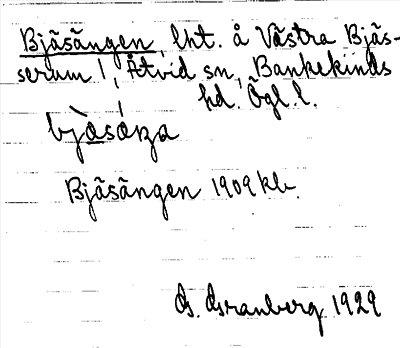 Bjäsängen, lht. å Västra Bjäs-
serum 1, Åtvid sn, Bankekinds
hd. Ögl. l.
Bjäsängen 1909 kb.
G. Granberg 1929